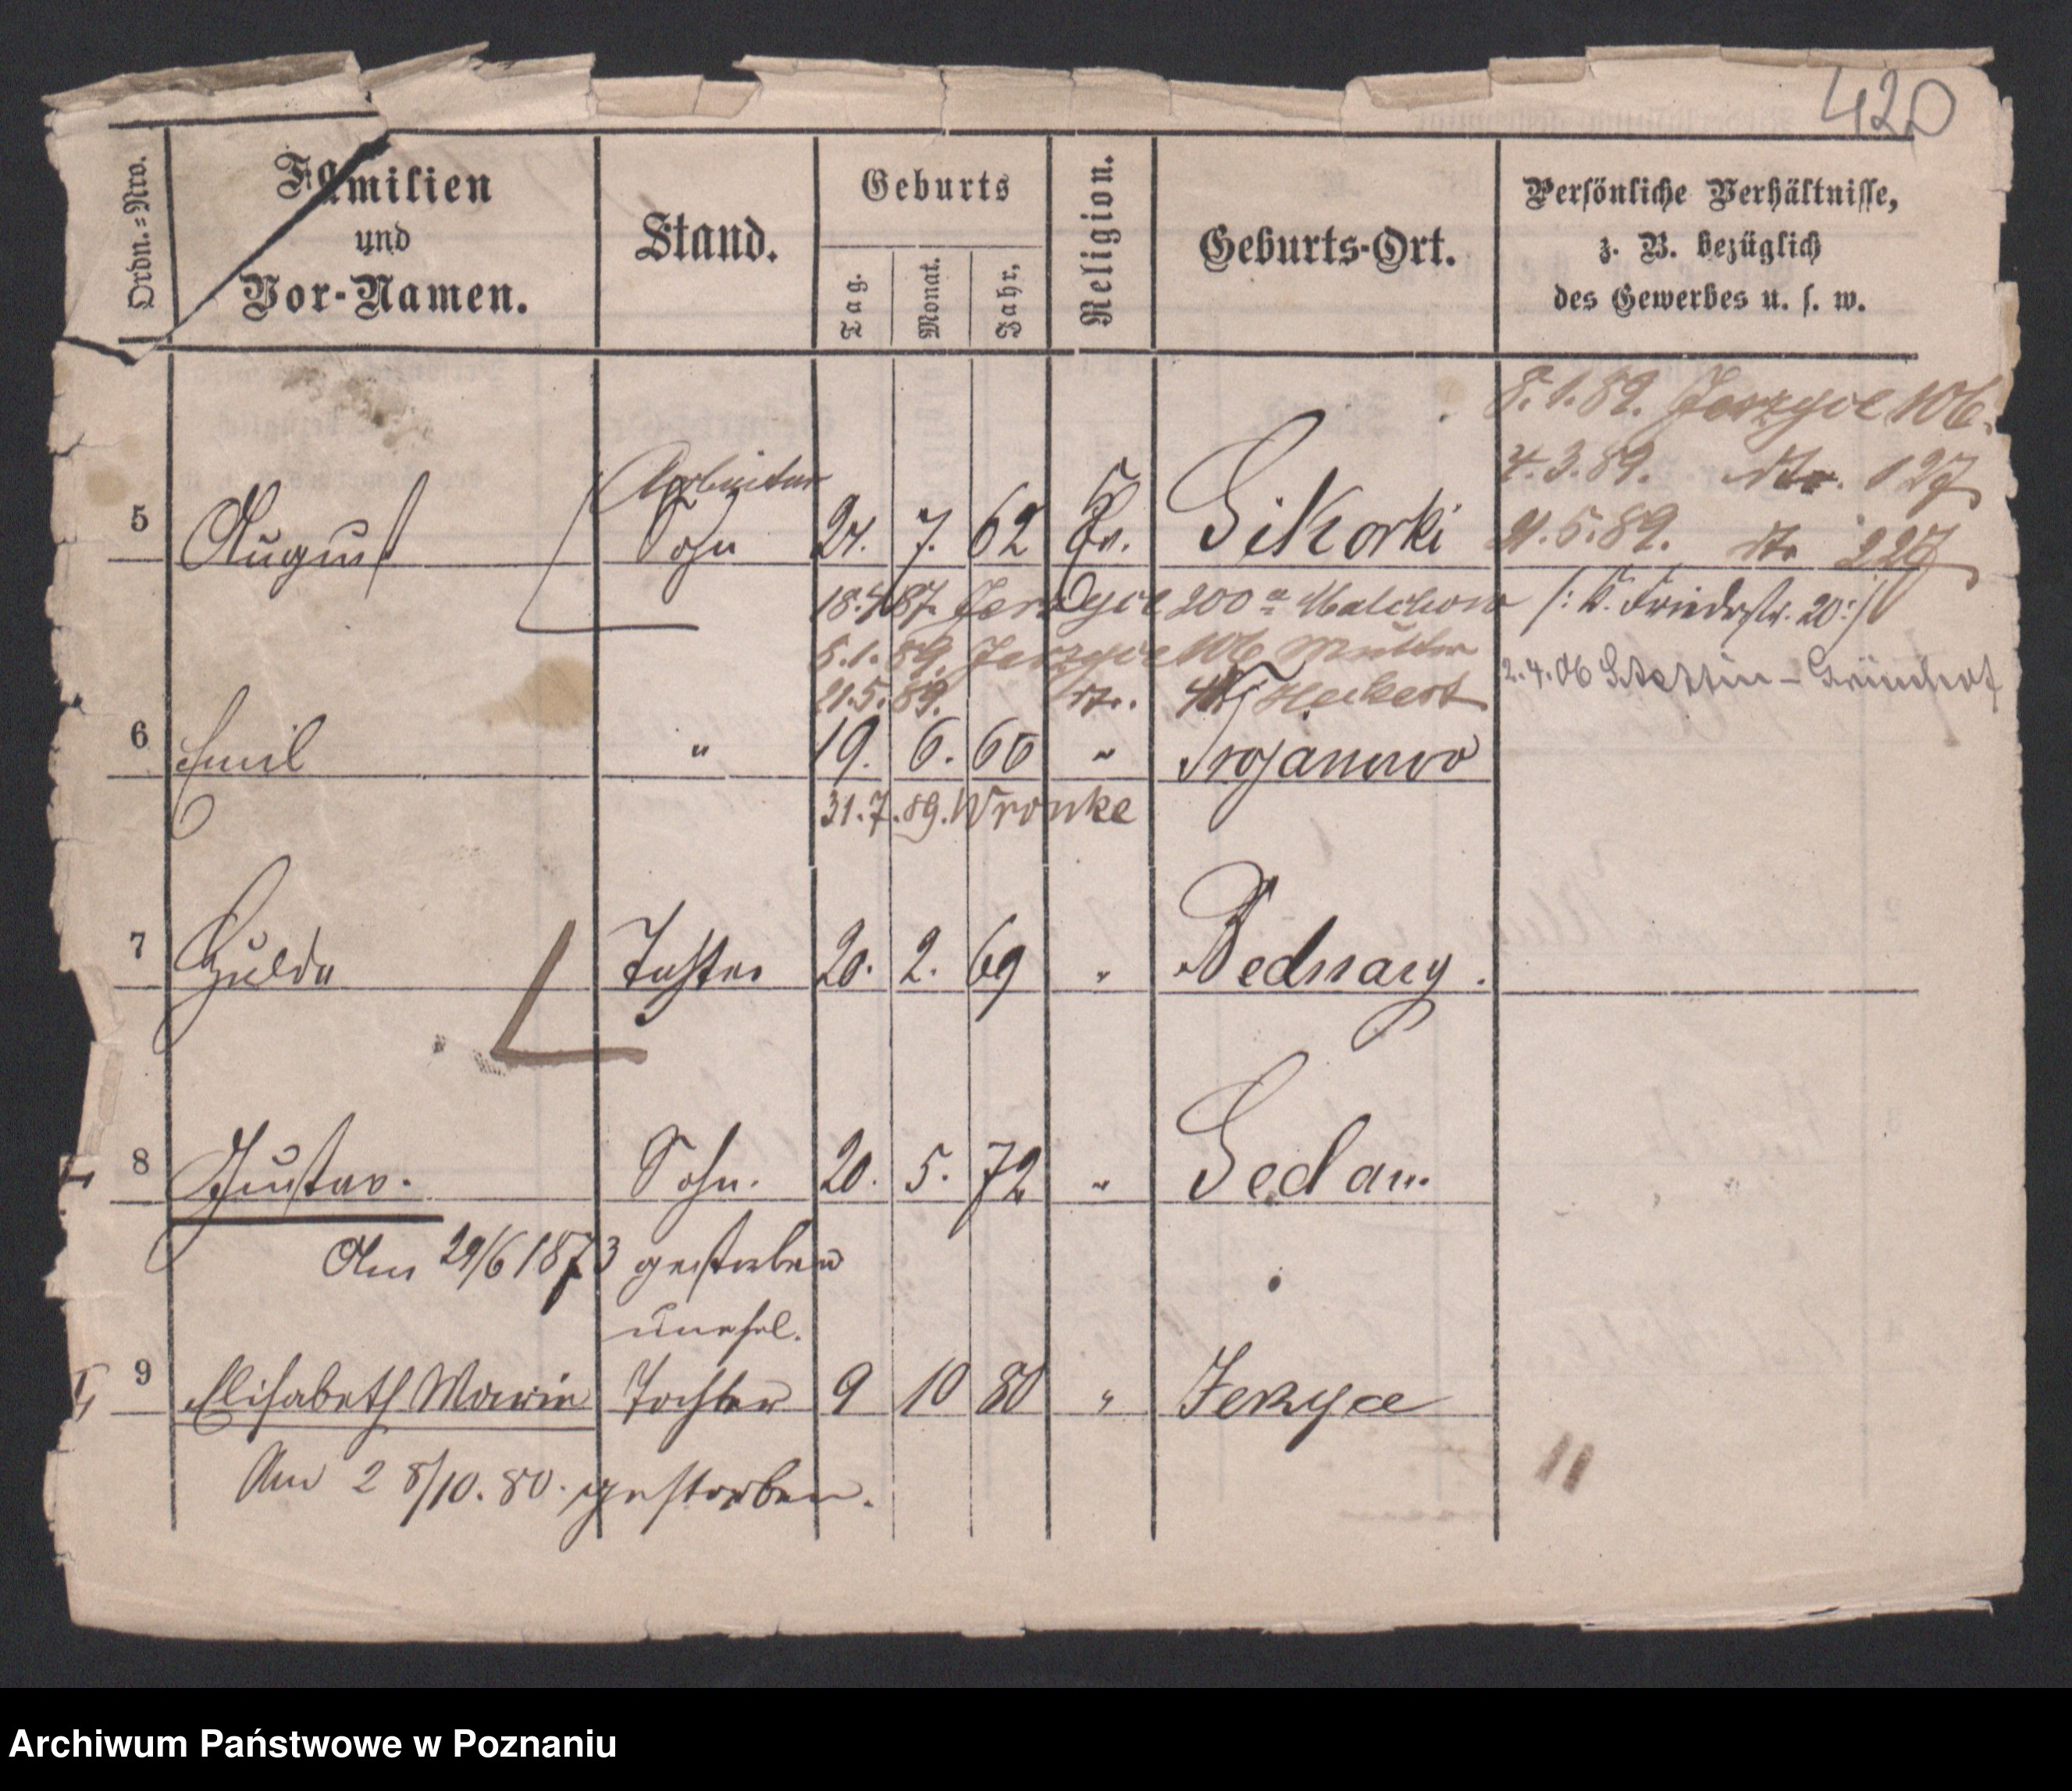 420
Ordn.=Nro.
Familien
und
Vor-Namen.
Stand.
Geburts
Tag.
Monat.
Jahr.
Religion.
Geburts-Ort.
Persönliche Verhältnisse,
z. B. bezüglich
des Gewerbes u. s. w.
8.1.89. Jerzyce 106.
4.3.89. dto. 127
21.5.89. dto 227
Arbeiter
5 August Sohn 24. 7. 62 Ev. Sikorki
18.4.87. Jerzyce 200a Malchow /: K. Friedrstr. 20:/
8.1.89. Jerzyce 106 Mutter
2.4.06 Stettin - Grünhof
21.5.89. dto. Heckert
6 Emil " 19. 6. 66 " Trojanowo
31.7.89. Wronke
7 Hulda Tochter 20. 2. 69 " Bednary.
8 Gustav. Sohn. 20. 5. 72 " Sedan.
Am 29/6 1873 gestorben
unehel.
9 Elisabeth Marie Tochter 9 10 80 " Jerzyce
Am 28/10. 80. gestorben.
Archiwum Państwowe w Poznaniu